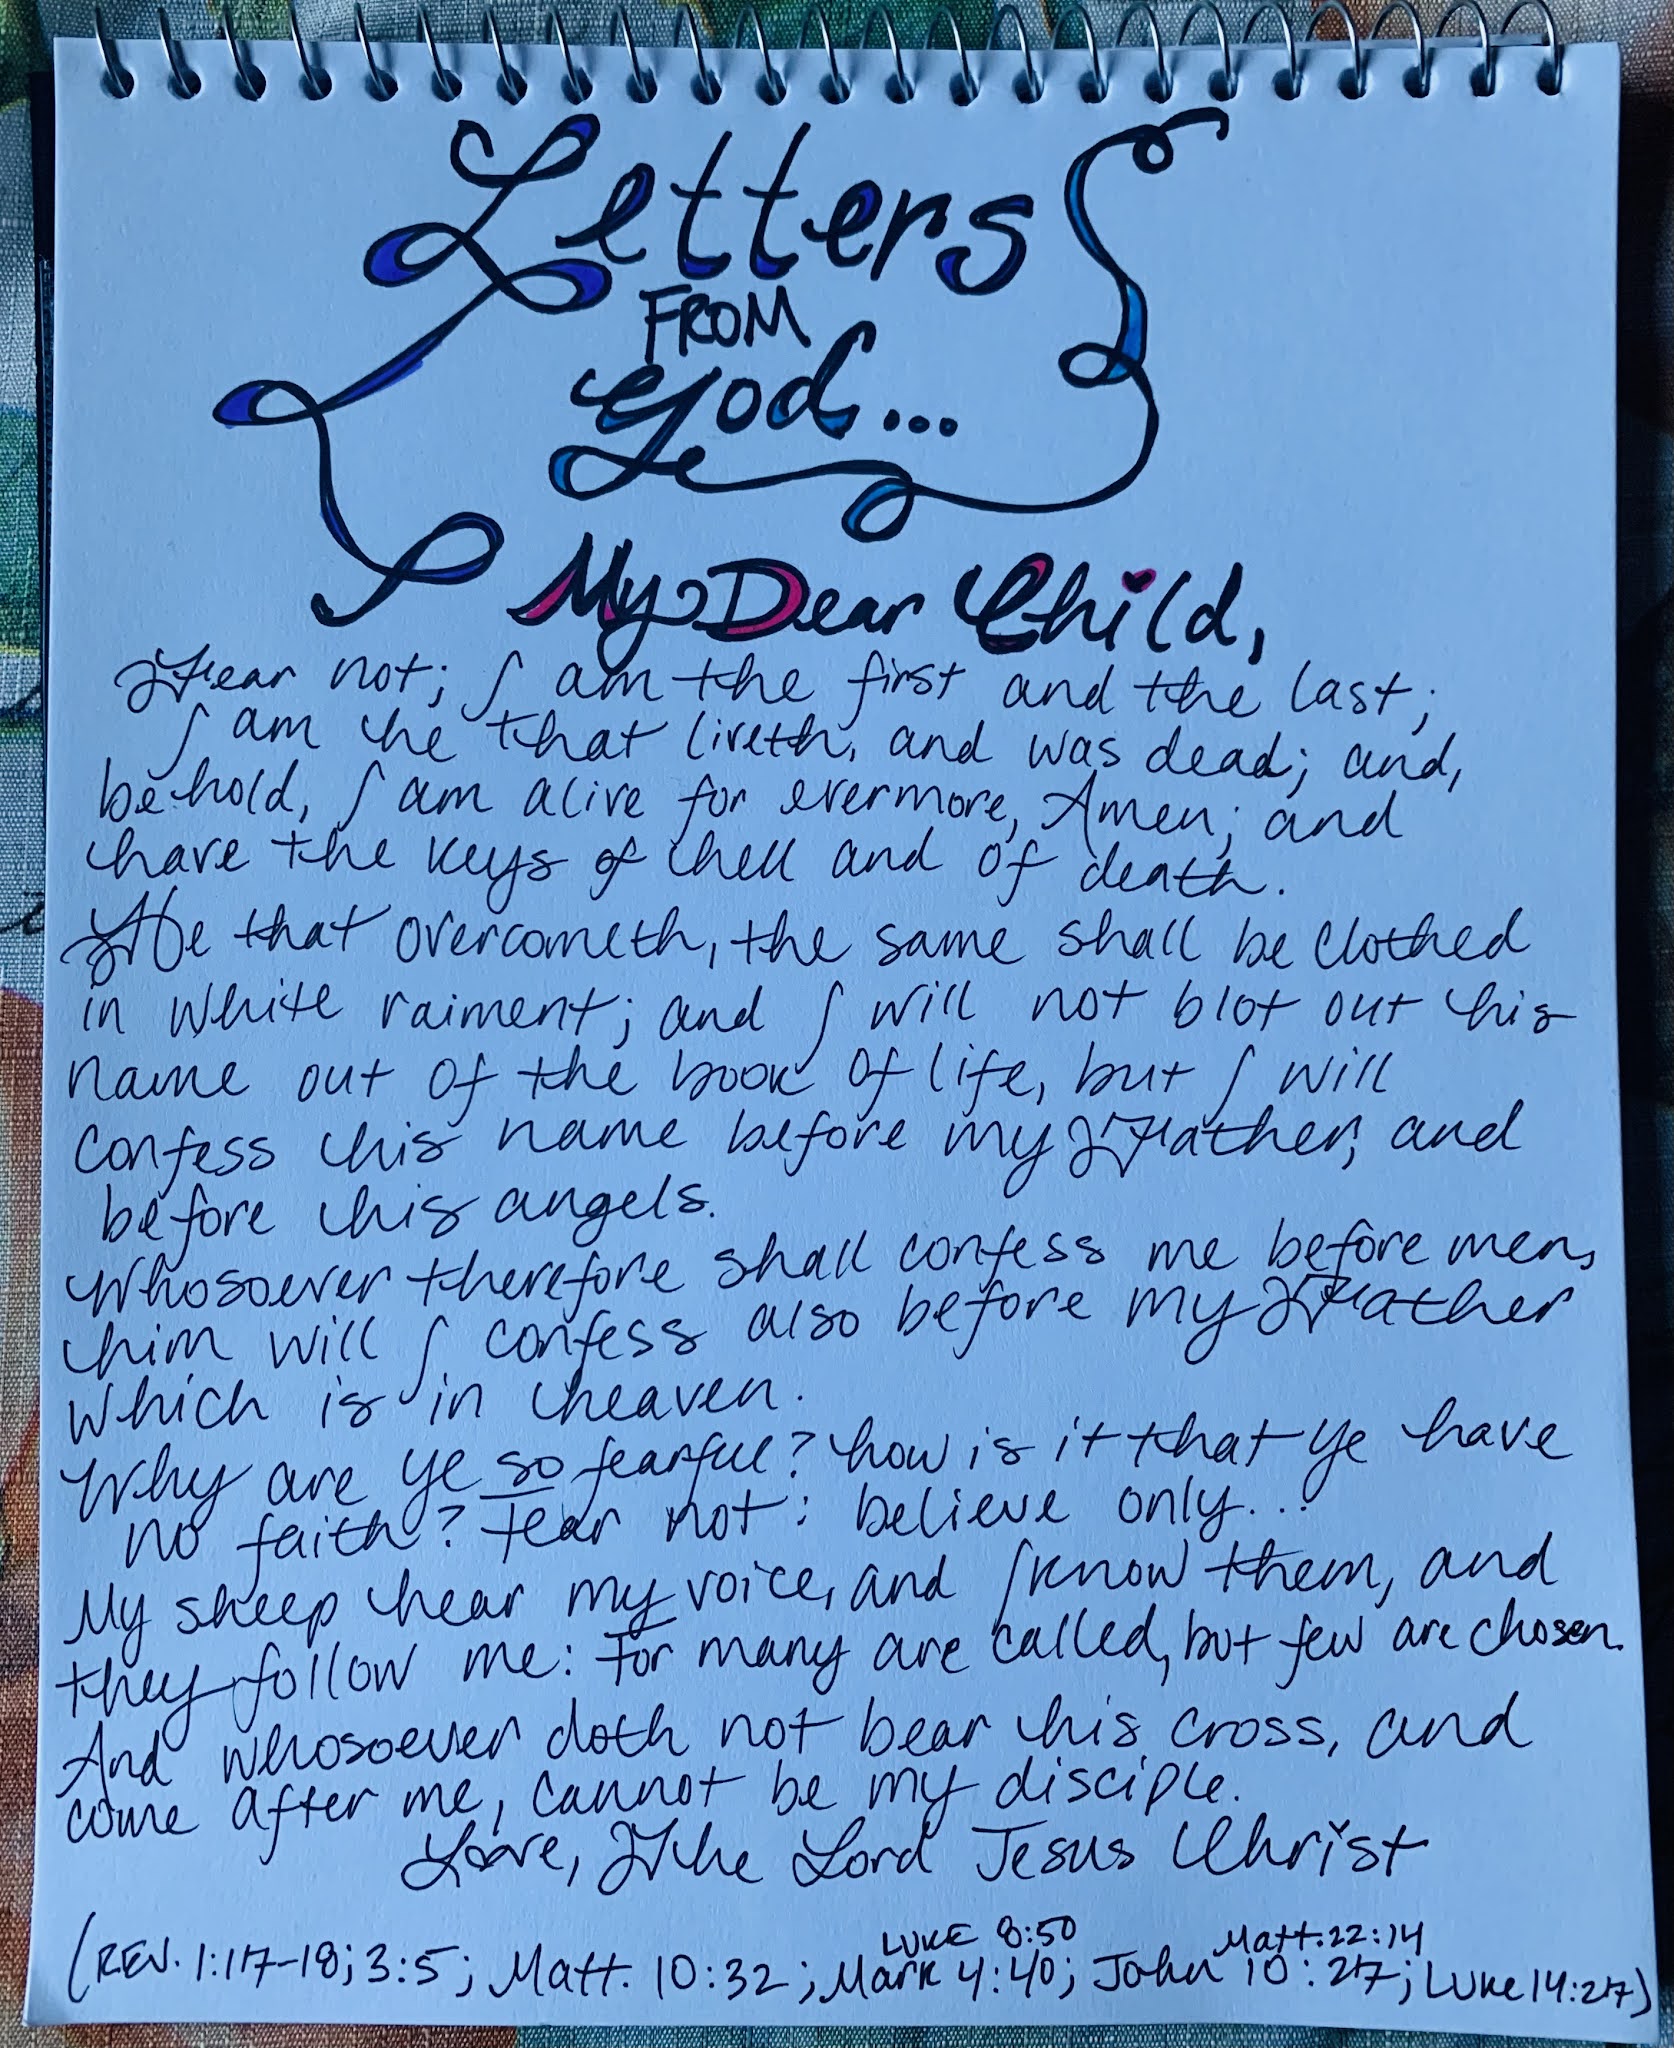 Letters
FROM
God...
My Dear Child,
Fear not; I am the first and the last;
I am he that liveth, and was dead; and,
behold, I am alive for evermore, Amen; and
have the keys of hell and of death.
He that overcometh, the same shall be clothed
in white raiment; and I will not blot out his
name out of the book of life, but I will
confess his name before my Father, and
before his angels.
Whosoever therefore shall confess me before men,
him will I confess also before my Father
which is in heaven.
Why are ye so fearful? how is it that ye have
no faith? Fear not: believe only...
My sheep hear my voice, and I know them, and
they follow me: For many are called, but few are chosen.
And whosoever doth not bear his cross, and
come after me, cannot be my disciple.
Love, The Lord Jesus Christ
LUKE 8:50 Matt. 22:14
(REV. 1:17-18; 3:5; Matt. 10:32; Mark 4:40; John 10:27; Luke 14:27)